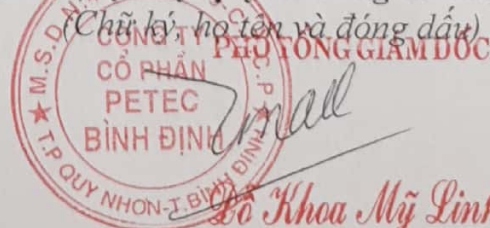 (Chữ ký, họ tên và đóng dấu)
PHÓ TỔNG GIÁM ĐỐC
M.S.D.N
CÔNG TY
CỔ PHẦN
PETEC
BÌNH ĐỊNH
T.P QUY NHƠN-T.BÌNH ĐỊNH
Đỗ Khoa Mỹ Linh